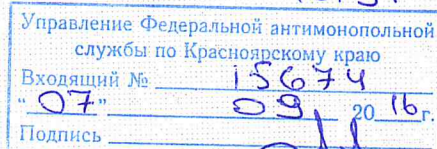 Управление Федеральной антимонопольной
службы по Красноярскому краю
Входящий № 15674
"07" 09 2016 г.
Подпись